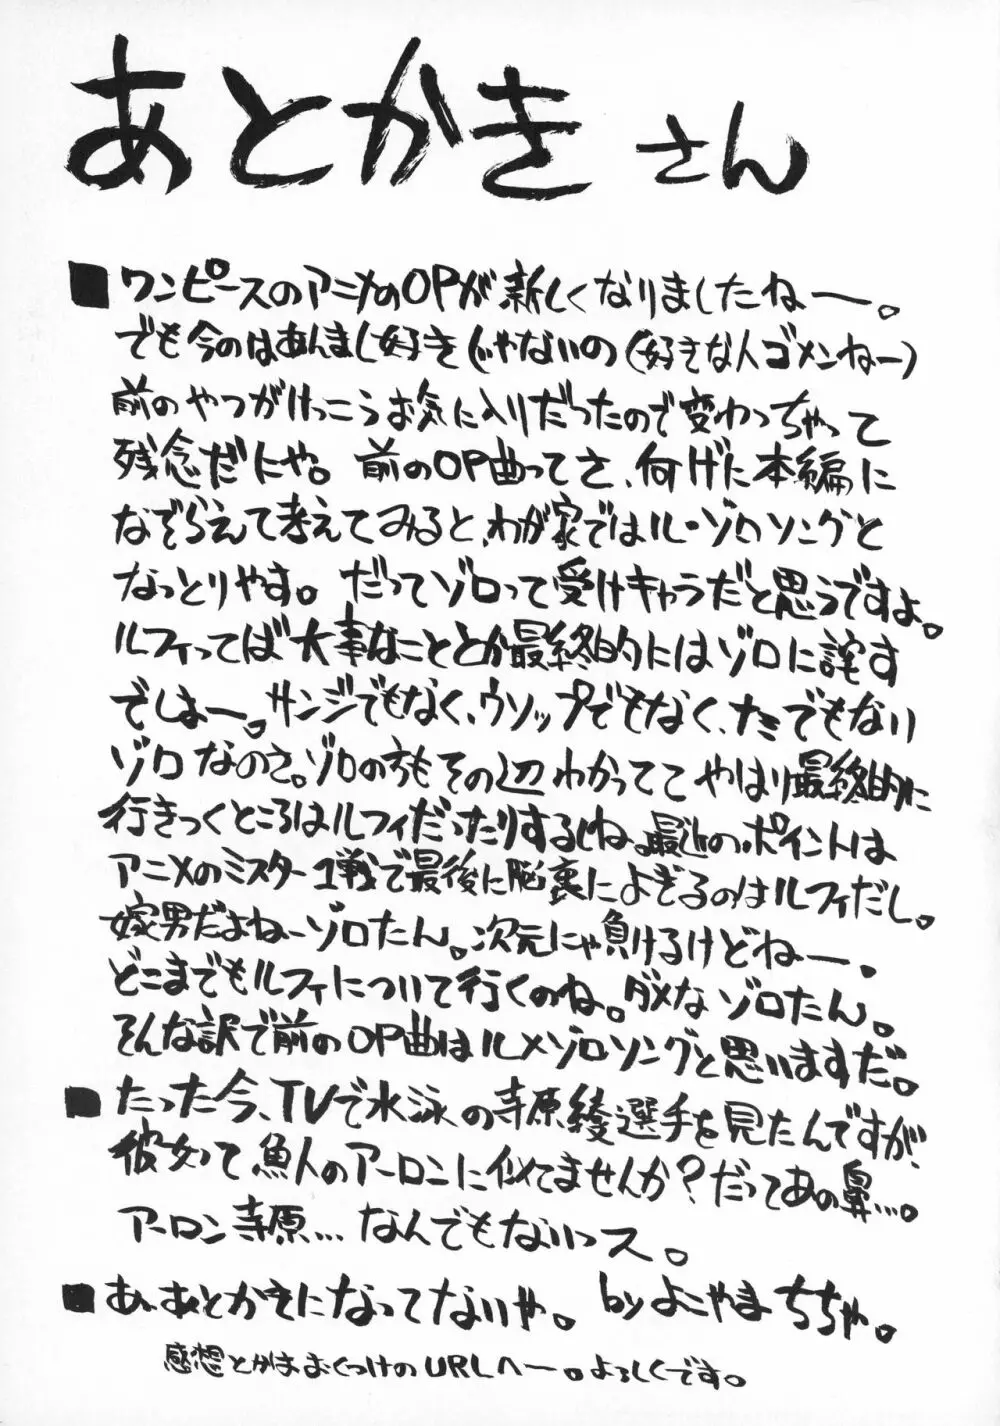 あとかきさん
■ワンピースのアニメのOPが新しくなりましたねー。
でも今のはあんまし好きじゃないの(好きな人ゴメンねー)
前のやつがけっこうお気に入りだったので変わっちゃって
残念だにゃ。前のOP曲ってさ、何げに本編に
なぞらえて考えてみると、わが家ではル・ゾロソングと
なっとりやす。だってゾロって受けキャラだと思うですよ。
ルフィってば大事なこととか最終的にはゾロに託す
でしょー。サンジでもなく、ウソップでもなく、ナミでもない
ゾロなのさ。ゾロの方もその辺わかってて やはり最終的に
行きつくところはルフィだったりするしね。最近のポイントは
アニメのミスター1戦で最後に脳裏によぎるのはルフィだし。
嫁男だよねーゾロたん。次元にゃ負けるけどねー。
どこまでもルフィについて行くのね。ダメな ゾロたん。
そんな訳で前のOP曲はル×ゾロソングと思いますだ。
■たった今、TVで水泳の寺原綾選手を見たんですが、
彼女って魚人のアーロンに似てませんか?だってあの鼻…。
アーロン寺原…なんでもないっス。
■あ、あとかきになってないや。 by よこやまちちゃ。
感想とかはおくつけのURLへー。よろしくです。